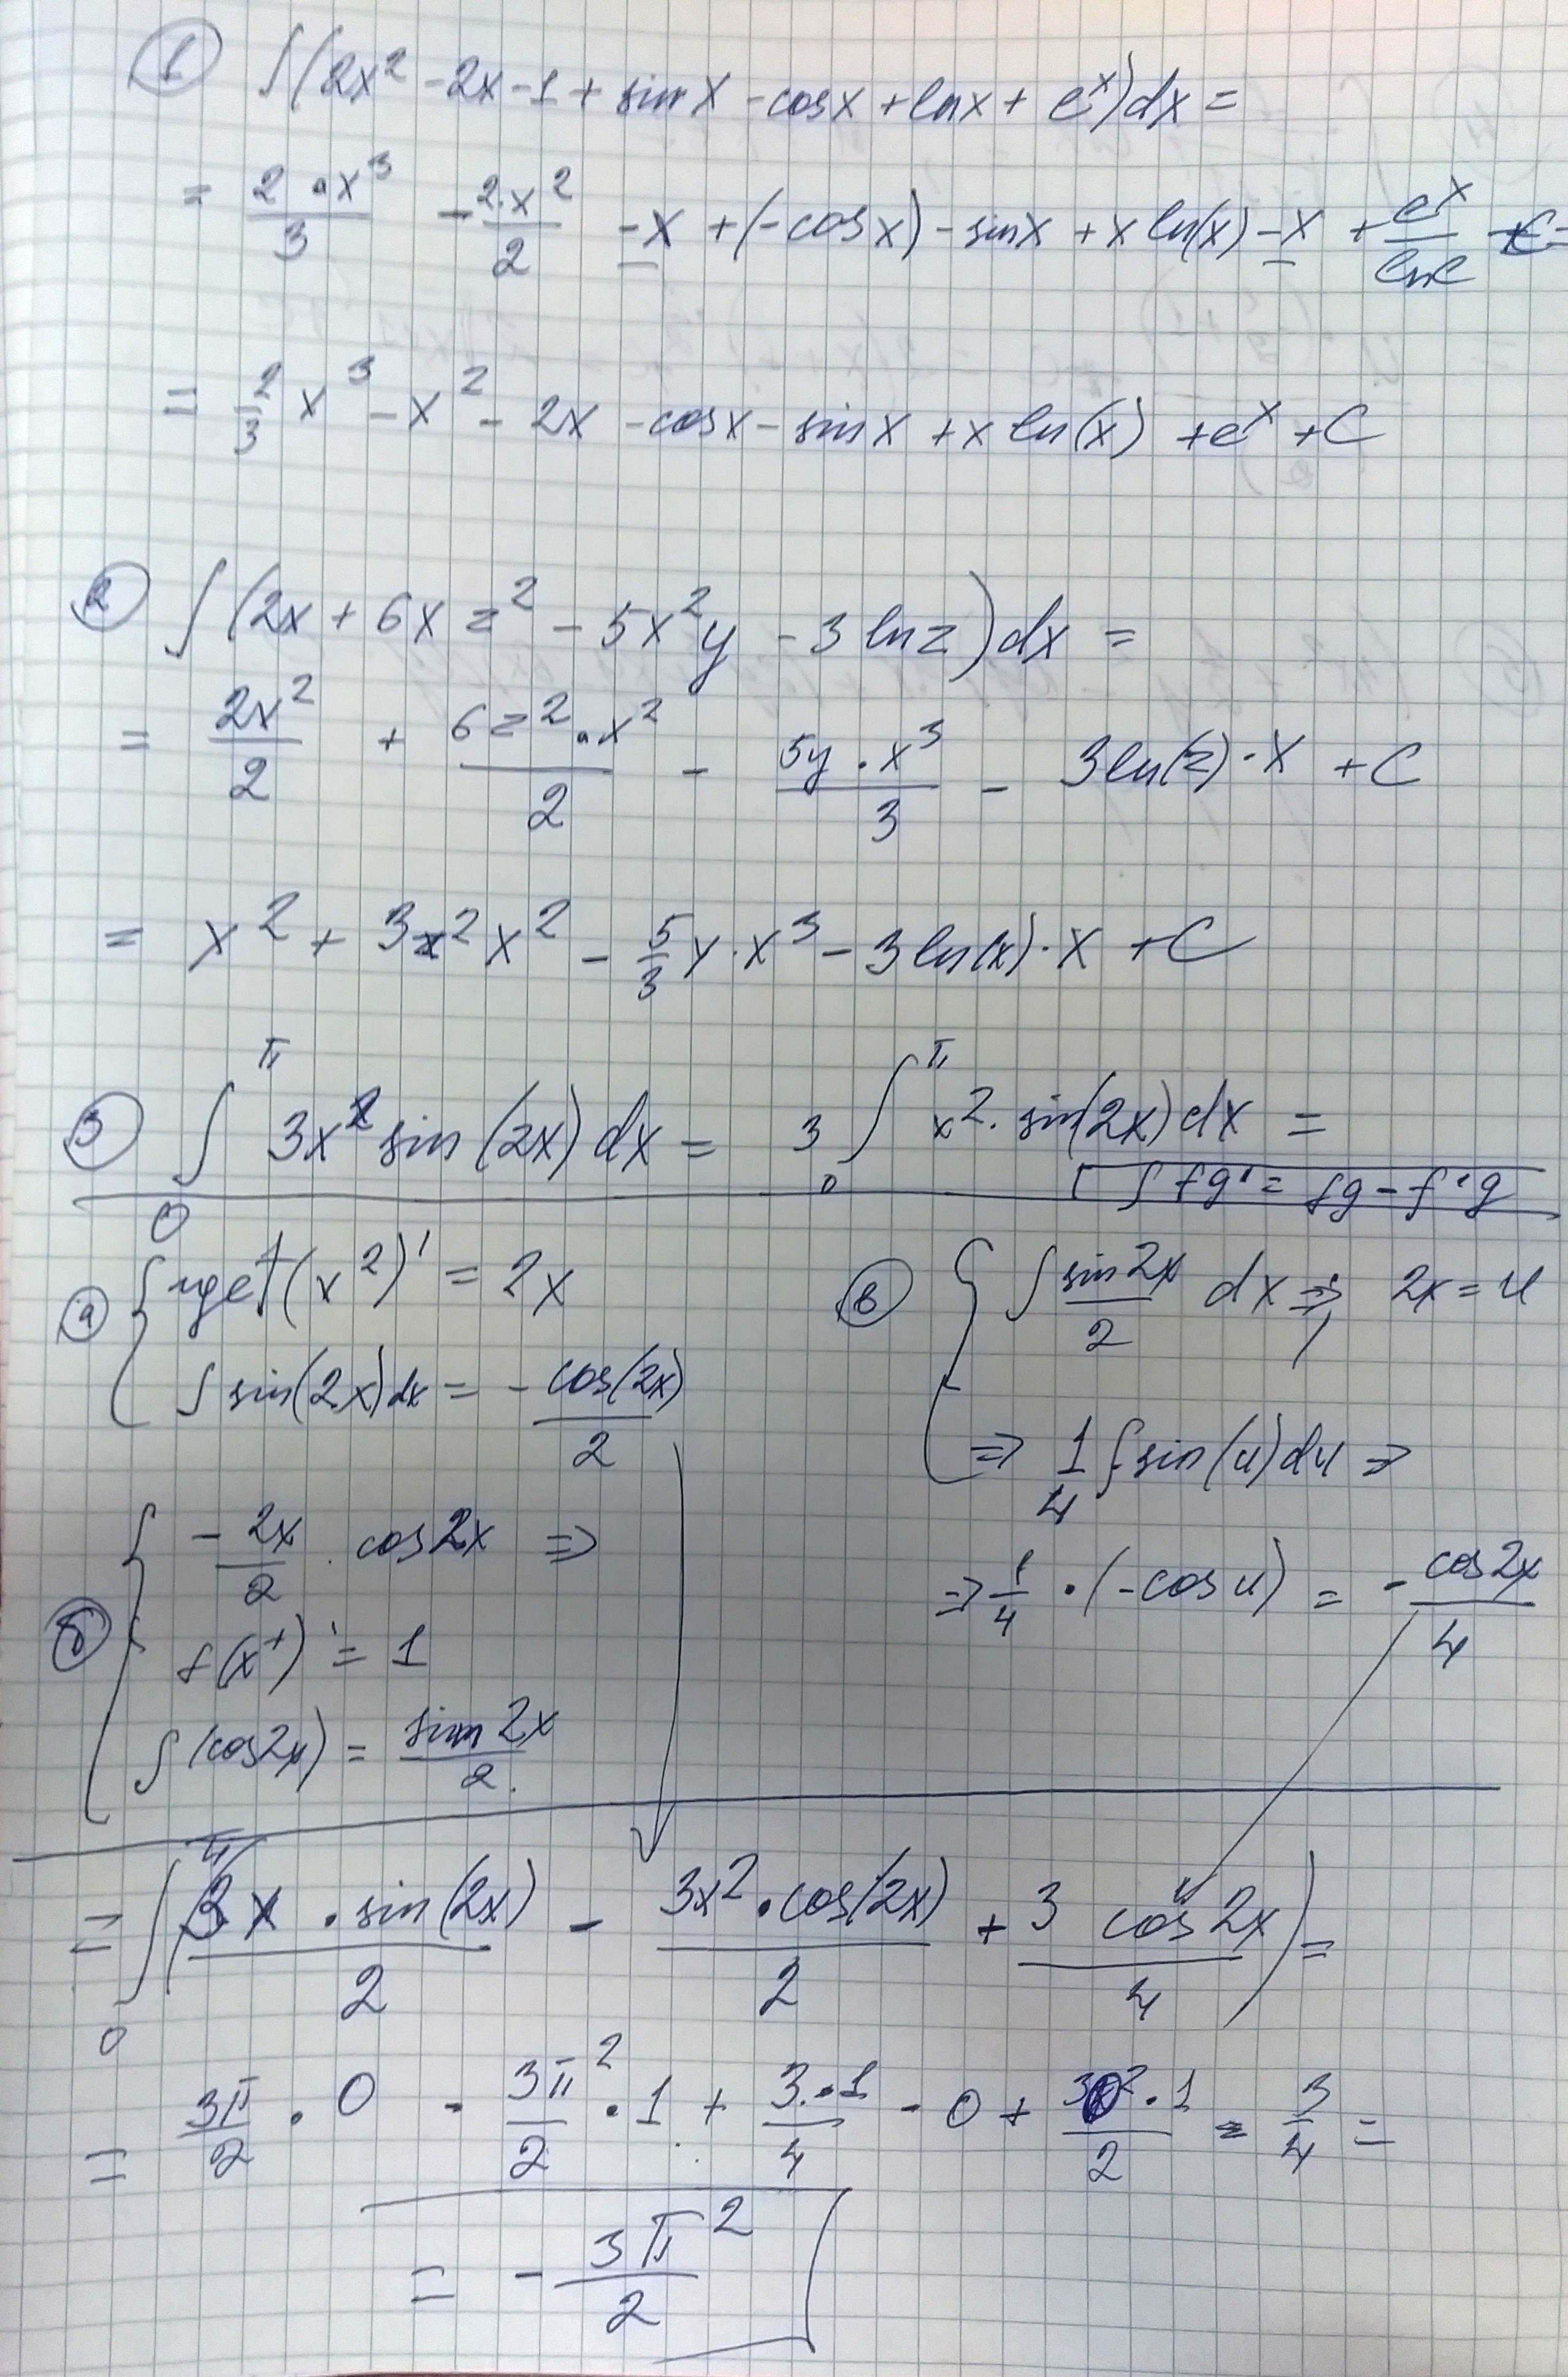 ① ∫(2x² - 2x - 1 + sin x - cos x + ln x + eˣ)dx =
= 2·x³/3 - 2·x²/2 - x + (-cos x) - sin x + x ln(x) - x + eˣ/ln e + C =
= 2/3 x³ - x² - 2x - cos x - sin x + x ln(x) + eˣ + C
② ∫(2x + 6xz² - 5x²y - 3 ln z)dx =
= 2x²/2 + 6z²·x²/2 - 5y·x³/3 - 3ln(z)·x + C
= x² + 3z²x² - 5/3 y·x³ - 3 ln(x)·x + C
③ ∫₀^π 3x² sin(2x)dx = 3 ∫₀^π x²·sin(2x)dx =
∫fg' = fg - f'g
а) (x²)' = 2x
∫sin(2x)dx = - cos(2x)/2
б) - 2x/2 · cos2x ⇒
f(x¹)' = 1
∫(cos2x) = sin 2x/2
в) ∫ sin2x/2 dx ⇒ 2x = u
⇒ 1/4 ∫sin(u)du ⇒
⇒ 1/4 · (-cos u) = - cos2x/4
= ∫₀^π (3x · sin(2x)/2 - 3x²·cos(2x)/2 + 3 cos2x/4) =
= 3π/2 · 0 - 3π²/2 · 1 + 3·1/4 - 0 + 3·0²·1/2 - 3/4 =
= - 3π²/2